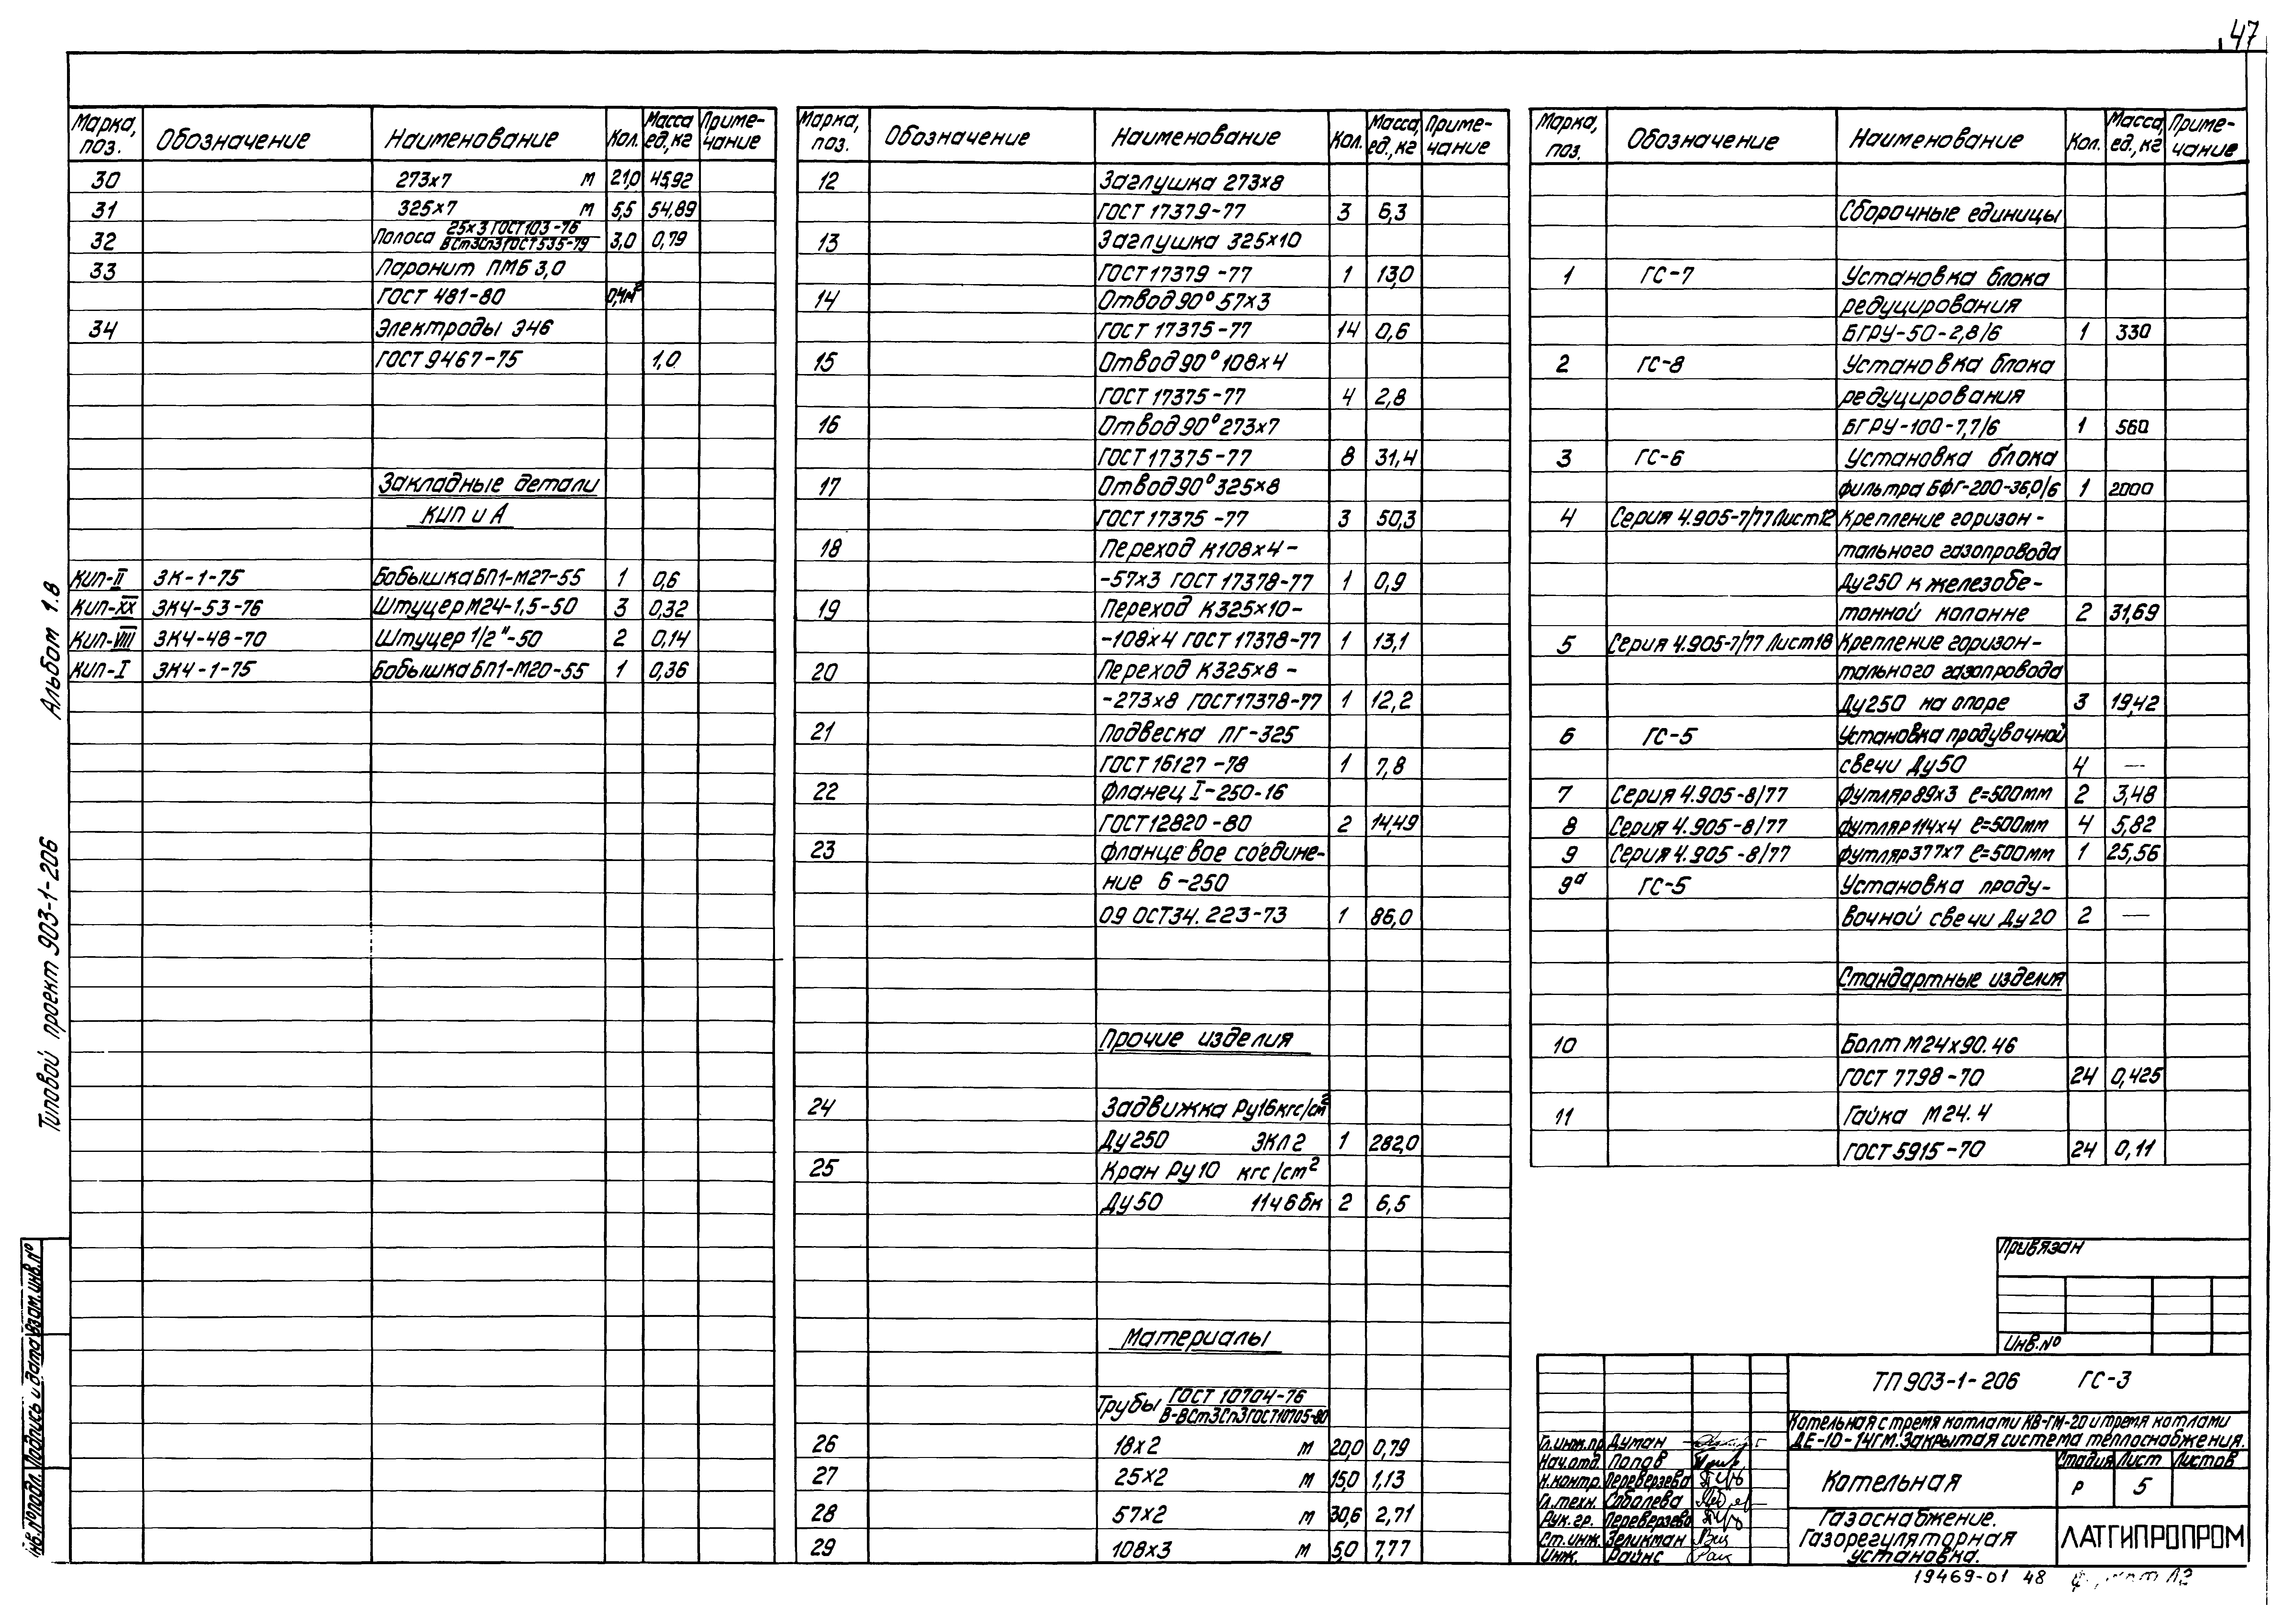 47
Марка, поз. Обозначение Наименование Кол. Масса ед., кг Примечание
30 273х7 м 21,0 45,92
31 325х7 м 5,5 54,89
32 Полоса 25х3 ГОСТ 103-76 / ВСт3Сп3 ГОСТ 535-79 3,0 0,79
33 Паронит ПМБ 3,0
ГОСТ 481-80 0,4м²
34 Электроды Э46
ГОСТ 9467-75 1,0
Закладные детали
КИП и А
КИП-II ЗК-1-75 Бобышка БП1-М27-55 1 0,6
КИП-XX ЗК4-53-76 Штуцер М24-1,5-50 3 0,32
КИП-VIII ЗК4-48-70 Штуцер 1/2"-50 2 0,14
КИП-I ЗК4-1-75 Бобышка БП1-М20-55 1 0,36
Марка, поз. Обозначение Наименование Кол. Масса, ед., кг Примечание
12 Заглушка 273х8
ГОСТ 17379-77 3 6,3
13 Заглушка 325х10
ГОСТ 17379-77 1 13,0
14 Отвод 90° 57х3
ГОСТ 17375-77 14 0,6
15 Отвод 90° 108х4
ГОСТ 17375-77 4 2,8
16 Отвод 90° 273х7
ГОСТ 17375-77 8 31,4
17 Отвод 90° 325х8
ГОСТ 17375-77 3 50,3
18 Переход К108х4-
-57х3 ГОСТ 17378-77 1 0,9
19 Переход К325х10-
-108х4 ГОСТ 17378-77 1 13,1
20 Переход К325х8-
-273х8 ГОСТ 17378-77 1 12,2
21 Подвеска ПГ-325
ГОСТ 16127-78 1 7,8
22 Фланец I-250-16
ГОСТ 12820-80 2 14,49
23 Фланцевое соедине-
ние 6-250
09 ОСТ34.223-73 1 86,0
Прочие изделия
24 Задвижка Ру16кгс/см²
Ду250 ЗКЛ2 1 282,0
25 Кран Ру10 кгс/см²
Ду50 11ч6бк 2 6,5
Материалы
Трубы ГОСТ 10704-76 / В-ВСт3Сп3 ГОСТ 10705-80
26 18х2 м 20,0 0,79
27 25х2 м 15,0 1,13
28 57х2 м 30,6 2,71
29 108х3 м 5,0 7,77
Марка, поз. Обозначение Наименование Кол. Масса, ед., кг Примечание
Сборочные единицы
1 ГС-7 Установка блока
редуцирования
БГРУ-50-2,8/6 1 330
2 ГС-8 Установка блока
редуцирования
БГРУ-100-7,7/6 1 560
3 ГС-6 Установка блока
фильтра БФГ-200-36,0/6 1 2000
4 Серия 4.905-7/77 Лист12 Крепление горизон-
тального газопровода
Ду250 к железобе-
тонной колонне 2 31,69
5 Серия 4.905-7/77 Лист18 Крепление горизон-
тального газопровода
Ду250 на опоре 3 19,42
6 ГС-5 Установка продувочной
свечи Ду50 4 —
7 Серия 4.905-8/77 Футляр 89х3 ℓ=500мм 2 3,48
8 Серия 4.905-8/77 Футляр 114х4 ℓ=500мм 4 5,82
9 Серия 4.905-8/77 Футляр 377х7 ℓ=500мм 1 25,56
9а ГС-5 Установка проду-
вочной свечи Ду20 2 —
Стандартные изделия
10 Болт М24х90.46
ГОСТ 7798-70 24 0,425
11 Гайка М24.4
ГОСТ 5915-70 24 0,11
Привязан
Инв.№
ТП 903-1-206 ГС-3
Котельная с тремя котлами КВ-ГМ-20 и тремя котлами
ДЕ-10-14ГМ. Закрытая система теплоснабжения.
Гл.инж.пр Думан
Нач.отд. Попов
Н.контр. Переверзева
Гл.техн. Соболева
Рук.гр. Переверзева
Ст.инж. Зеликман
Инж. Райнс
Котельная
Стадия Лист Листов
Р 5
Газоснабжение.
Газорегуляторная
установка.
ЛАТГИПРОПРОМ
19469-01 48
Альбом 1.8
Типовой проект 903-1-206
Инв.№ подл. Подпись и дата Взам.инв.№